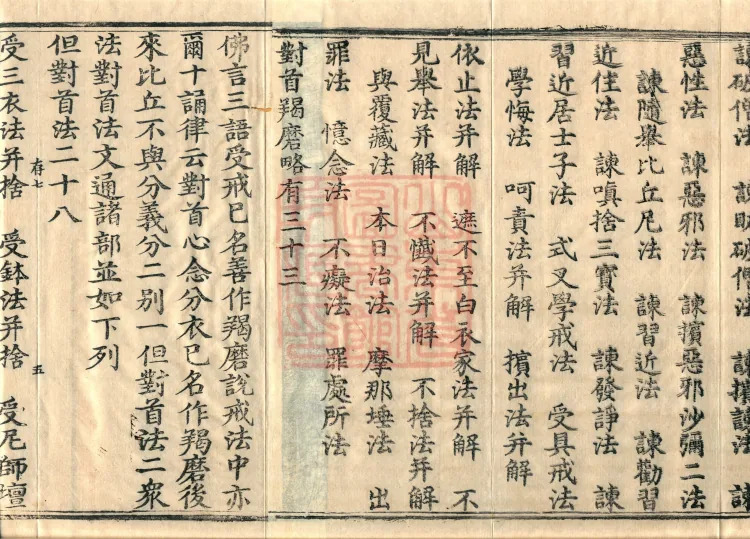 諫破僧法　諫助破僧法　諫擯謗法　諫
惡性法　諫惡邪法　諫擯惡邪沙彌二法
諫隨舉比丘尼法　諫習近法　諫勸習
近住法　諫嗔捨三寶法　諫發諍法　諫
習近居士子法　式叉學戒法　受具戒法
學悔法　呵責法并解　擯出法并解
依止法并解　遮不至白衣家法并解　不
見舉法并解　不懺法并解　不捨法并解
與覆藏法　本日治法　摩那埵法　出
罪法　憶念法　不癡法　罪處所法
對首羯磨略有三十三
佛言三語受戒已名善作羯磨說戒法中亦
爾十誦律云對首心念分衣已名作羯磨後
來比丘不與分義分二別一但對首法二衆
法對首法文通諸部並如下列
但對首法二十八
存七　五
受三衣法并捨　受鉢法并捨　受尼師壇